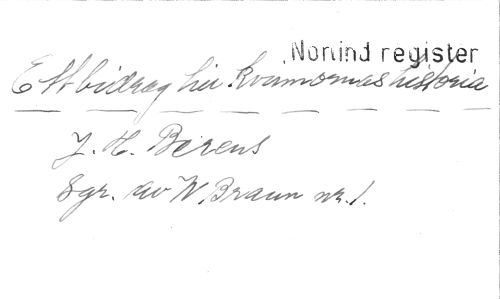 Norlind register
Ett bidrag till kvarnornas historia
J. H. Berens
Sgr. av W. Braun nr. 1.